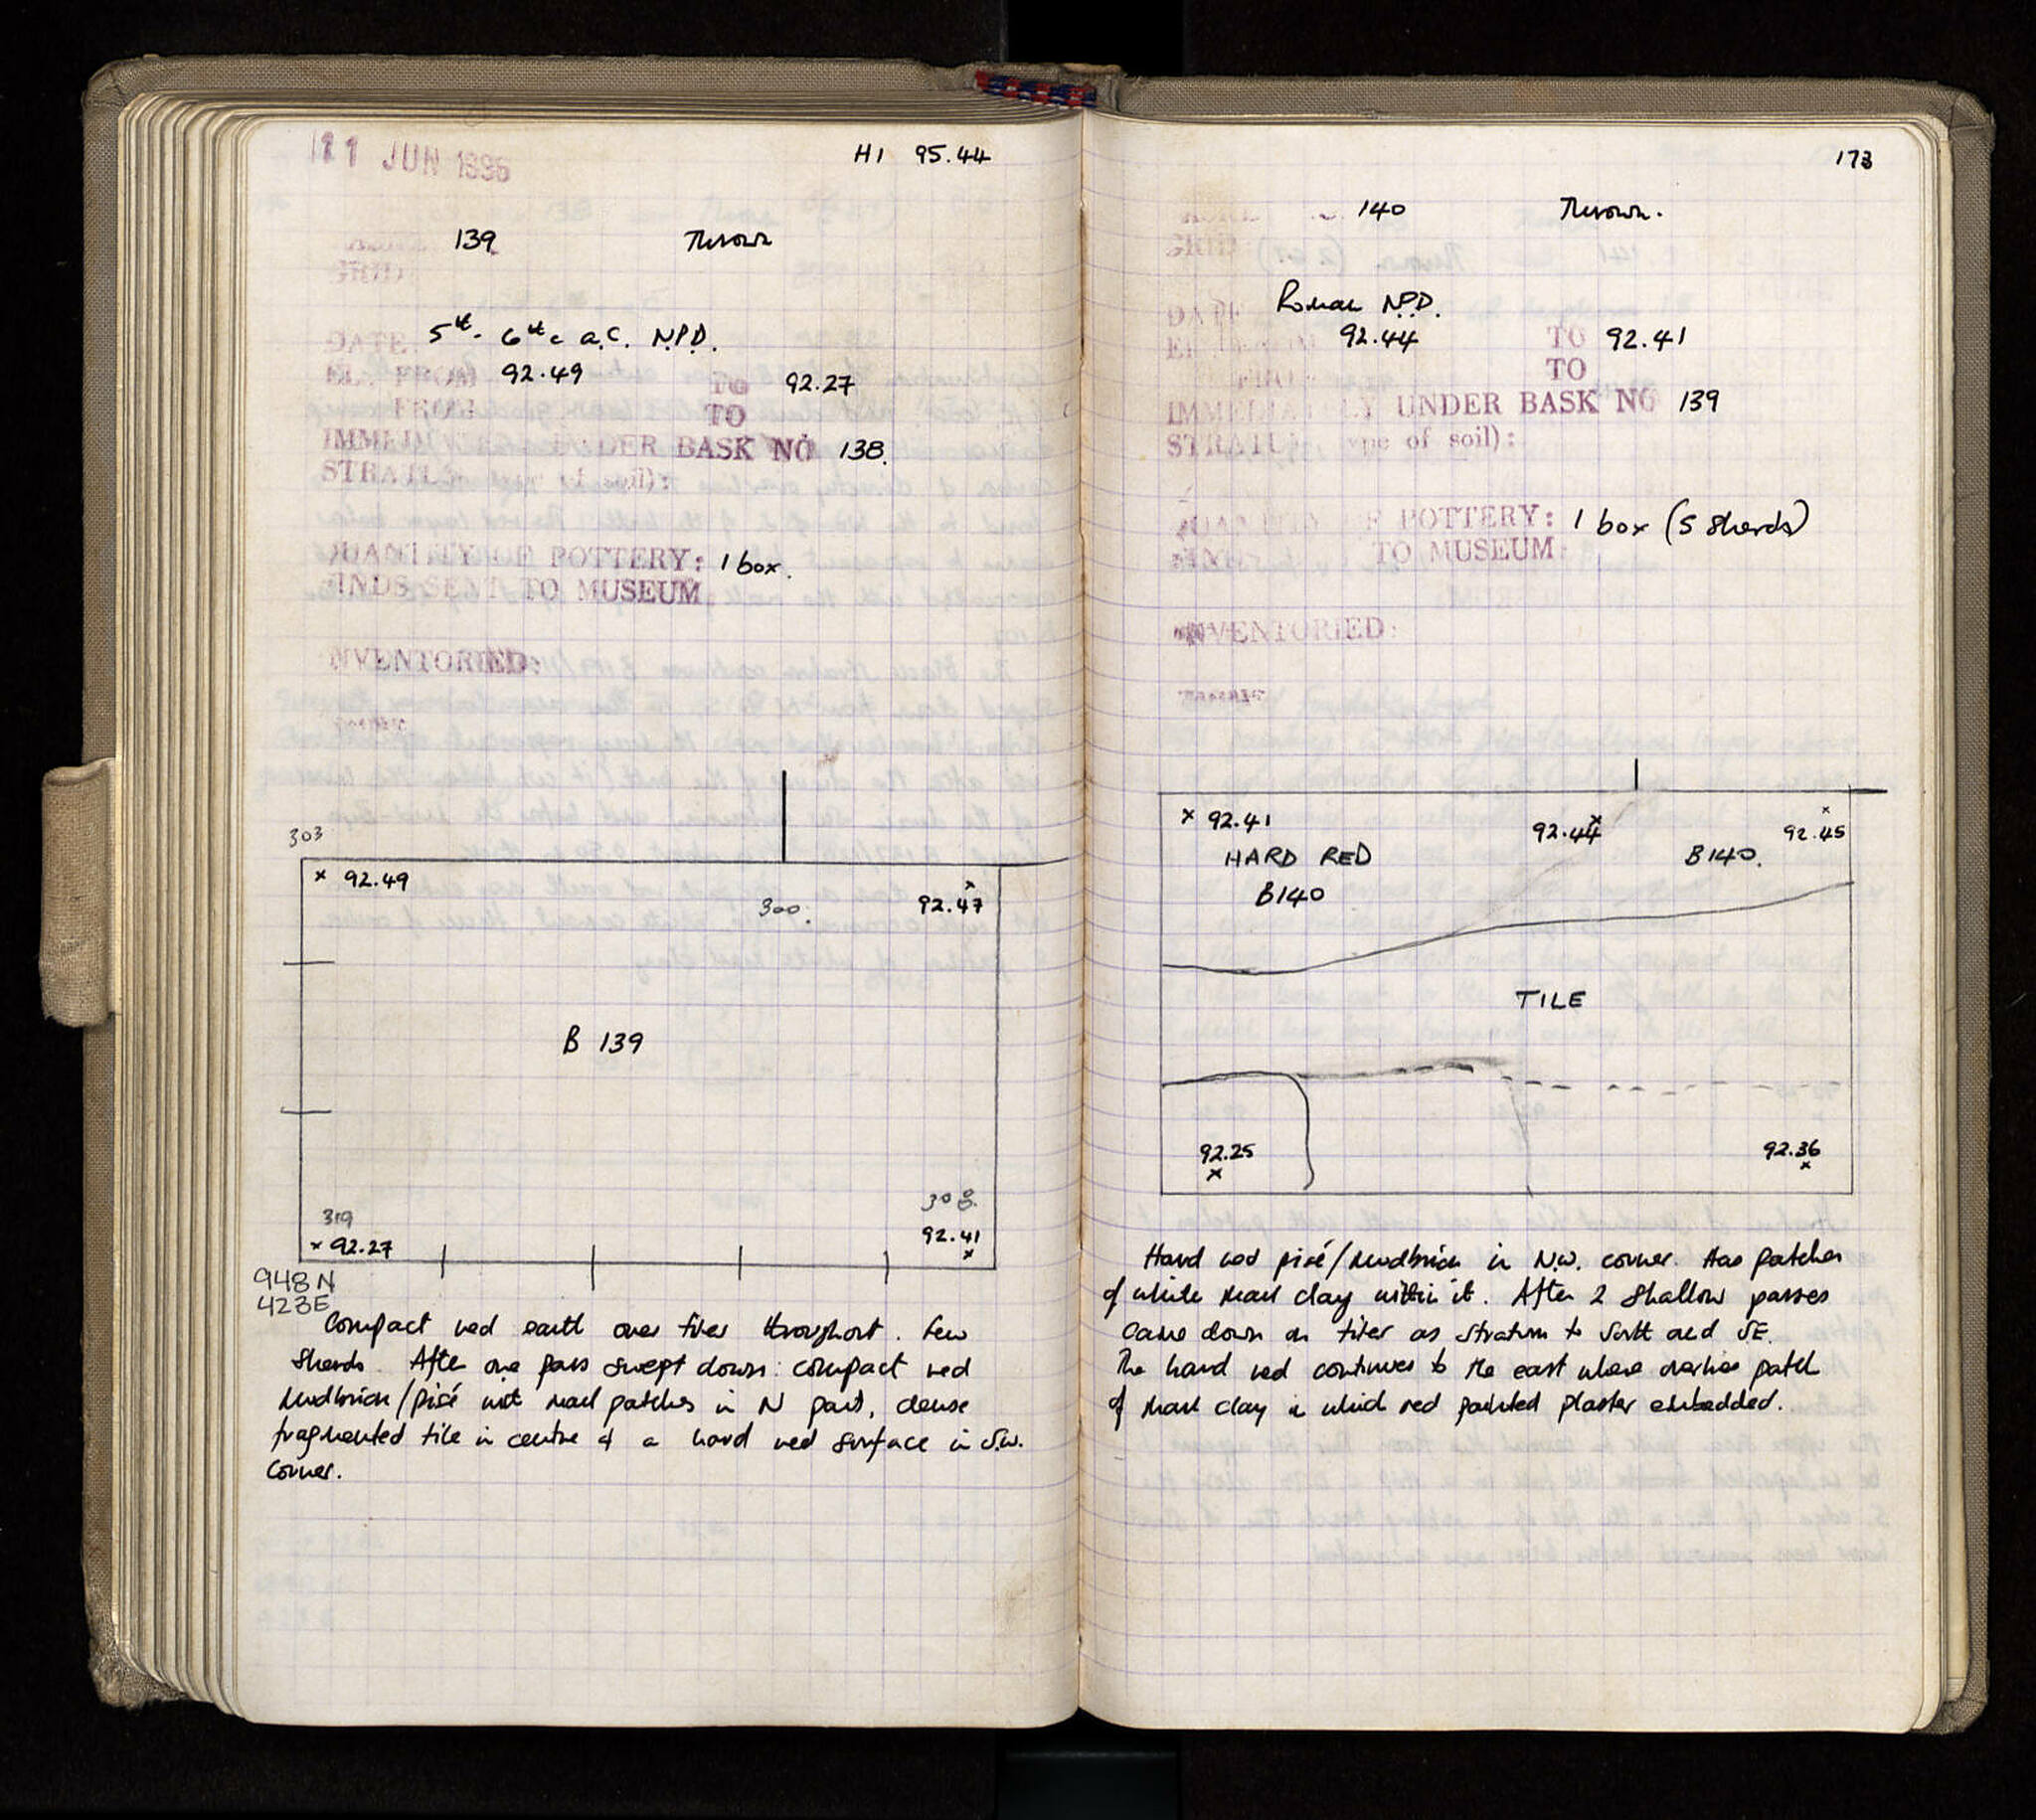 11 JUN 1996
HI 95.44
139 Thrown
GRID
DATE 5th - 6th c a.c. N.P.D.
EL. FROM 92.49 TO 92.27
FROM TO
IMMEDIATELY UNDER BASK NO 138.
STRATUM (type of soil):
QUANTITY OF POTTERY: 1 box.
FINDS SENT TO MUSEUM:
INVENTORIED:
303
x 92.49
300.
x
92.47
B 139
319
x 92.27
308
92.41
x
948 N
423 E
Compact red earth over tiles throughout. Few
sherds. After one pass swept down: compact red
mudbrick/pisé with marl patches in N part, dense
fragmented tile in centre & a hard red surface in S.W.
corner.
173
140 Thrown.
GRID
DATE Roman N.P.D.
92.44 TO 92.41
TO
IMMEDIATELY UNDER BASK NO 139
STRATUM (type of soil):
QUANTITY OF POTTERY: 1 box (5 sherds)
TO MUSEUM:
INVENTORIED:
x 92.41
92.44 x
x
92.45
HARD RED
B140
B140.
TILE
92.25
x
92.36
x
Hard red pisé/mudbrick in N.W. corner. Has patches
of white marl clay within it. After 2 shallow passes
came down on tiles as stratum to South and SE.
The hard red continues to the east where overlies patch
of marl clay in which red painted plaster embedded.